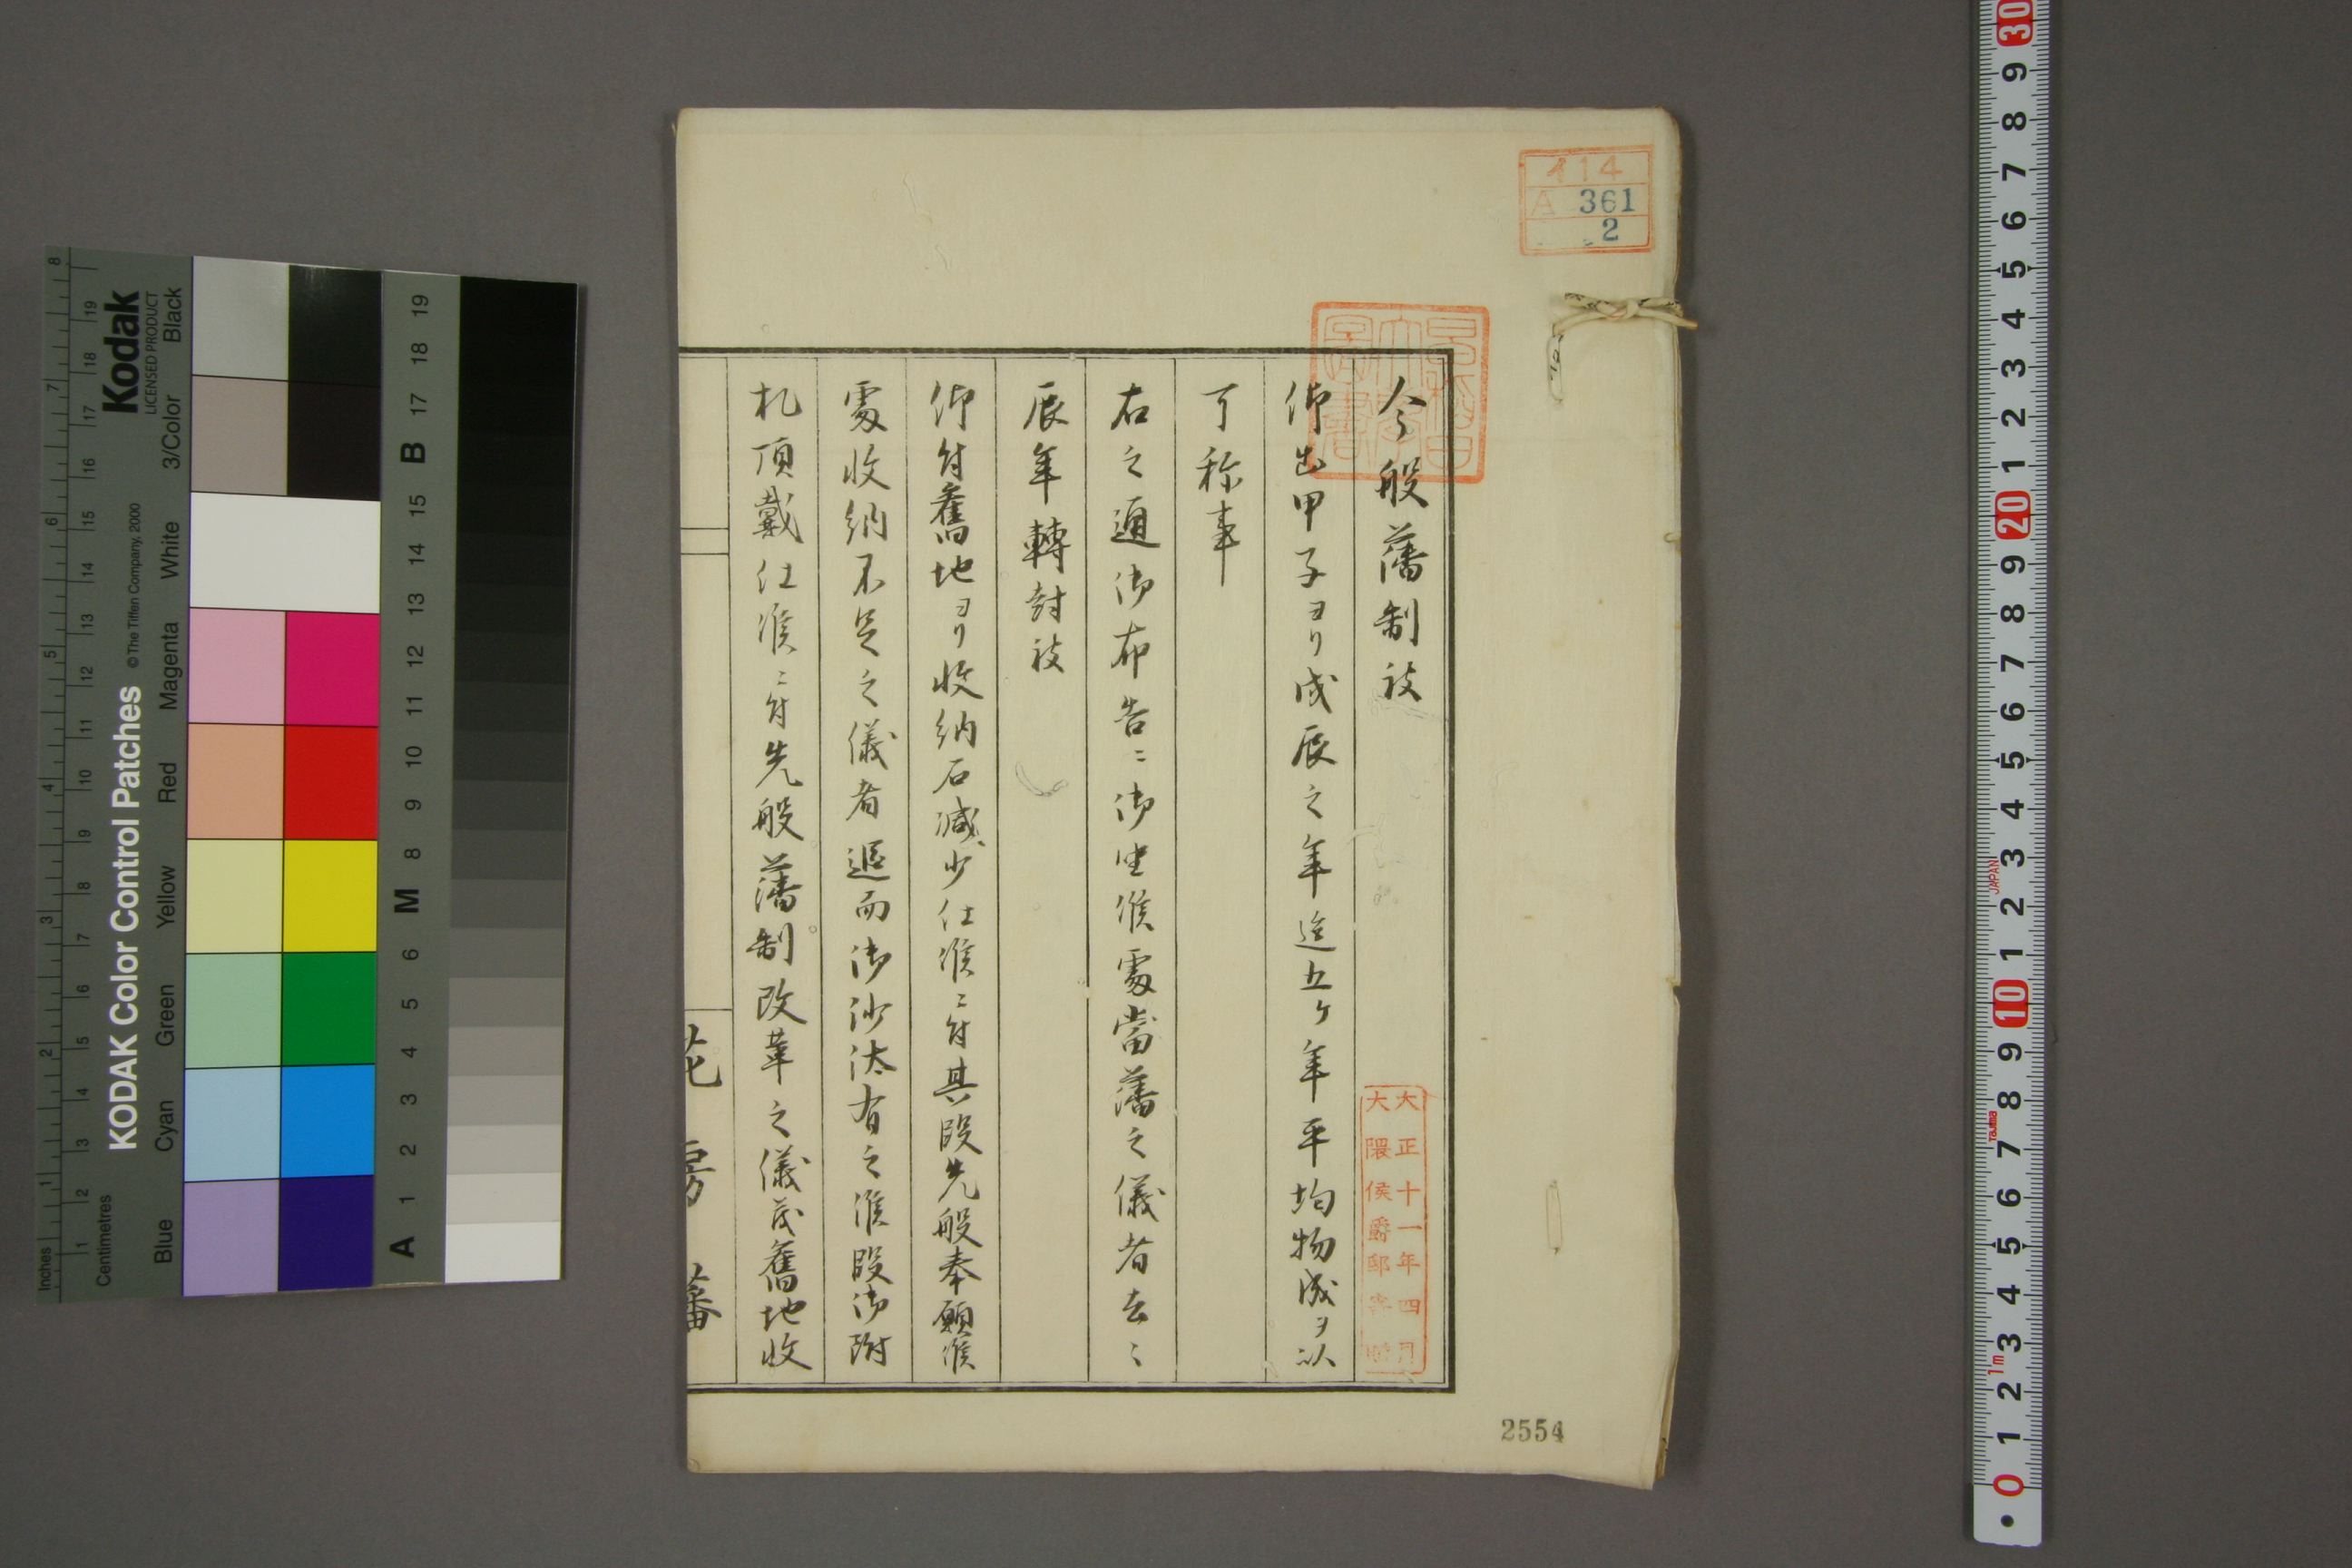 今般藩制被
仰出甲子ヨリ戊辰之年迄五ケ年平均物成ヲ以
可称事
右之通御布告ニ御坐候處當藩之儀者去ル
辰年轉封被
仰付舊地ヨリ收納石減少仕候ニ付其段先般奉願候
處收納不足之儀者追而御沙汰有之候段御附
札頂戴仕候ニ付先般藩制改革之儀茂舊地收
花房藩
大正十一年四月
大隈侯爵邸寄贈
早稲田大學圖書
414
A 361
2
2554
Kodak
LICENSED PRODUCT
KODAK Color Control Patches
© The Tiffen Company, 2000
Blue Cyan Green Yellow Red Magenta White 3/Color Black
Inches 1 2 3 4 5 6 7 8
Centimetres 1 2 3 4 5 6 7 8 9 10 11 12 13 14 15 16 17 18 19
A 1 2 3 4 5 6 M 8 9 10 11 12 13 14 15 B 17 18 19
0 1 2 3 4 5 6 7 8 9 10 1 2 3 4 5 6 7 8 9 20 1 2 3 4 5 6 7 8 9 30
1m
Tajima
JAPAN